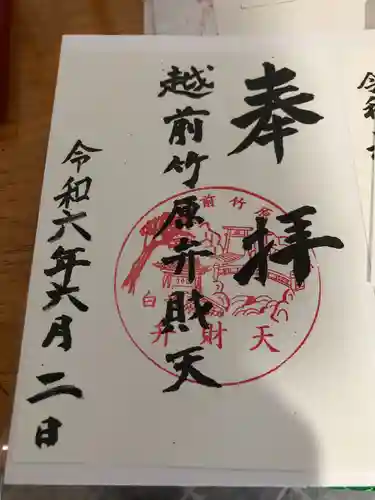 奉拝
越前竹原弁財天
令和六年六月二日
前竹
白
弁財天
令和六